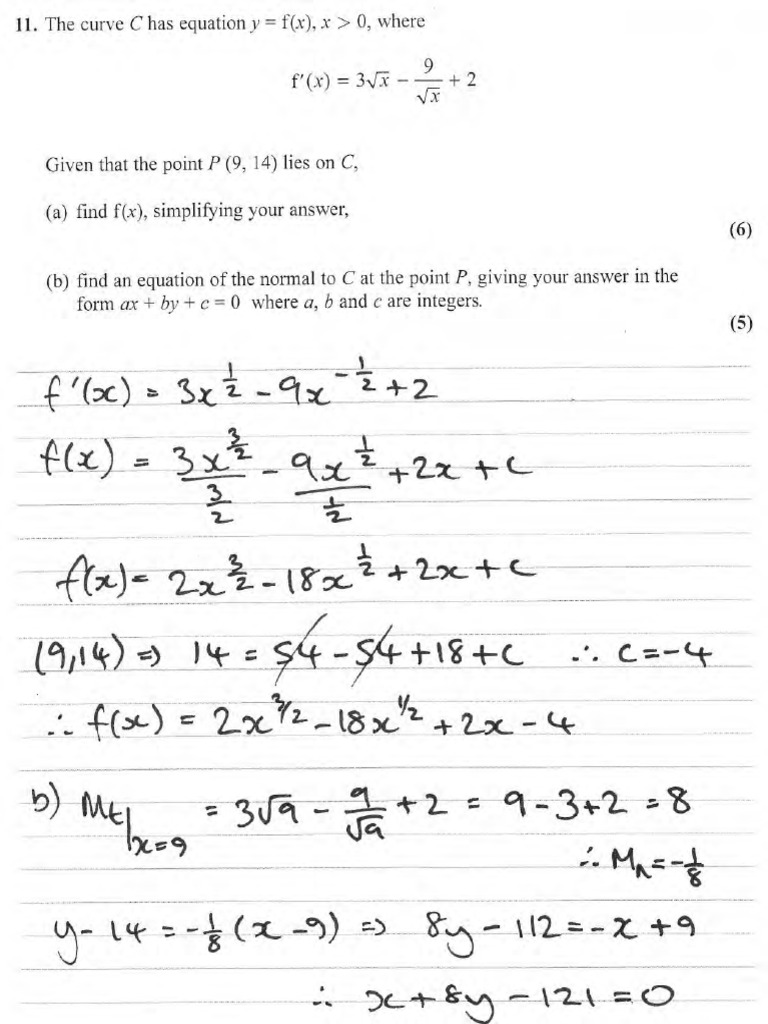 11. The curve C has equation y = f(x), x > 0, where
f′(x) = 3√x − 9/√x + 2
Given that the point P (9, 14) lies on C,
(a) find f(x), simplifying your answer,
(6)
(b) find an equation of the normal to C at the point P, giving your answer in the
form ax + by + c = 0 where a, b and c are integers.
(5)
f'(x) = 3x^(1/2) - 9x^(-1/2) + 2
f(x) = 3x^(3/2)/(3/2) - 9x^(1/2)/(1/2) + 2x + c
f(x) = 2x^(3/2) - 18x^(1/2) + 2x + c
(9,14) ⇒ 14 = 54 - 54 + 18 + c ∴ c = -4
∴ f(x) = 2x^(3/2) - 18x^(1/2) + 2x - 4
b) Mt|x=9 = 3√9 - 9/√9 + 2 = 9 - 3 + 2 = 8
∴ Mn = -1/8
y - 14 = -1/8 (x - 9) ⇒ 8y - 112 = -x + 9
∴ x + 8y - 121 = 0